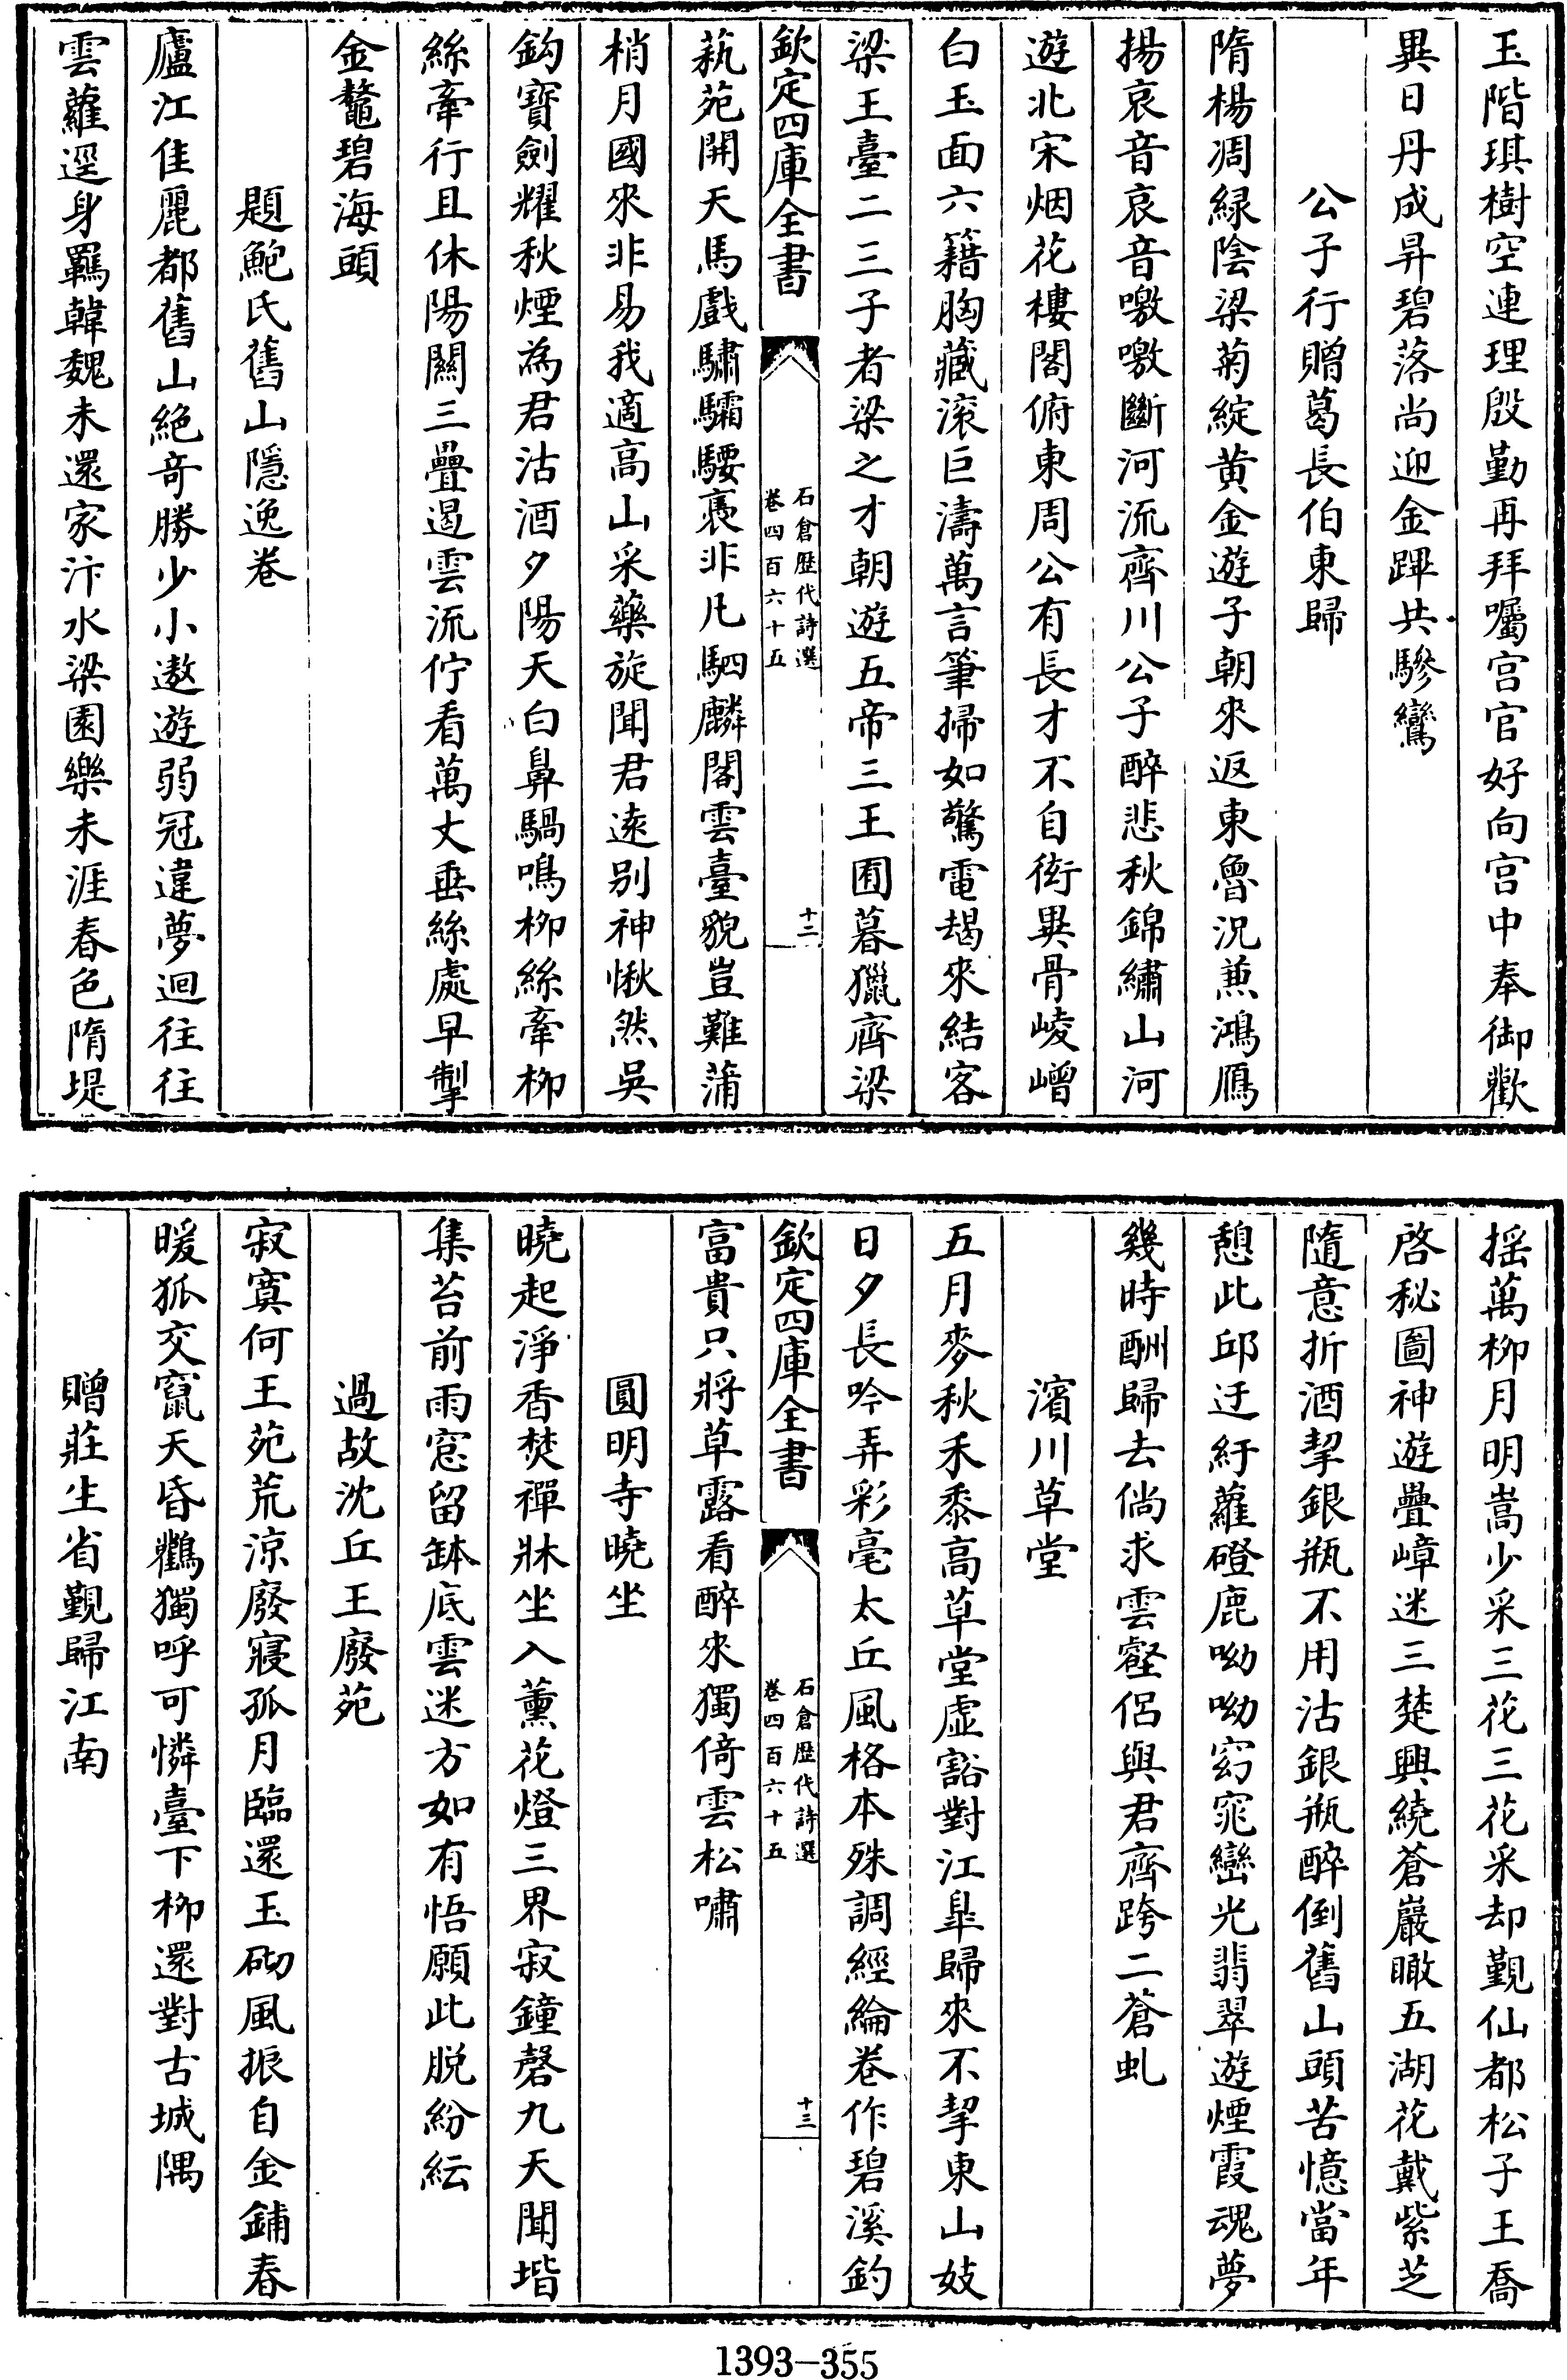 玉階琪樹空連理殷勤再拜囑宫官好向宫中奉御歡
異日丹成昇碧落尚迎金蹕共驂鸞
公子行贈葛長伯東歸
隋楊凋緑陰梁菊綻黄金遊子朝來返東魯況兼鴻鴈
揚哀音哀音嗷嗷斷河流齊川公子醉悲秋錦繡山河
遊北宋烟花樓閣俯東周公有長才不自衒異骨崚嶒
白玉面六籍胸藏滚巨濤萬言筆掃如驚電朅來結客
梁王臺二三子者梁之才朝遊五帝三王囿暮獵齊梁
欽定四庫全書
石倉歷代詩選
卷四百六十五
十二
蓺苑開天馬戲驌驦騕褭非凡駟麟閣雲臺貌豈難蒲
梢月國來非易我適高山采藥旋聞君遠别神愀然吳
鈎寶劍耀秋煙為君沽酒夕陽天白鼻騧鳴栁絲牽栁
絲牽行且休陽關三疊遏雲流佇看萬丈垂絲處早掣
金鼇碧海頭
題鮑氏舊山隱逸卷
廬江佳麗都舊山絶奇勝少小遨遊弱冠違夢迴往往
雲蘿逕身羈韓魏未還家汴水梁園樂未涯春色隋堤
揺萬栁月明嵩少采三花三花采却覲仙都松子王喬
啓秘圖神遊疊嶂迷三楚興繞蒼巖瞰五湖花戴紫芝
隨意折酒挈銀瓶不用沽銀瓶醉倒舊山頭苦憶當年
憩此邱迂紆蘿磴鹿呦呦窈窕巒光翡翠遊煙霞魂夢
幾時酬歸去倘求雲壑侶與君齊跨二蒼虬
濱川草堂
五月麥秋禾黍高草堂虚豁對江臯歸來不挈東山妓
日夕長吟弄彩毫太丘風格本殊調經綸卷作碧溪釣
欽定四庫全書
石倉歷代詩選
卷四百六十五
十三
富貴只將草露看醉來獨倚雲松嘯
圓明寺曉坐
曉起淨香焚禪牀坐入薰花燈三界寂鐘磬九天聞堦
集苔前雨窓留缽底雲迷方如有悟願此脱紛紜
過故沈丘王廢苑
寂寞何王苑荒涼廢寢孤月臨還玉砌風振自金鋪春
暖狐交竄天昏鸛獨呼可憐臺下栁還對古城隅
贈莊生省覲歸江南
1393–355